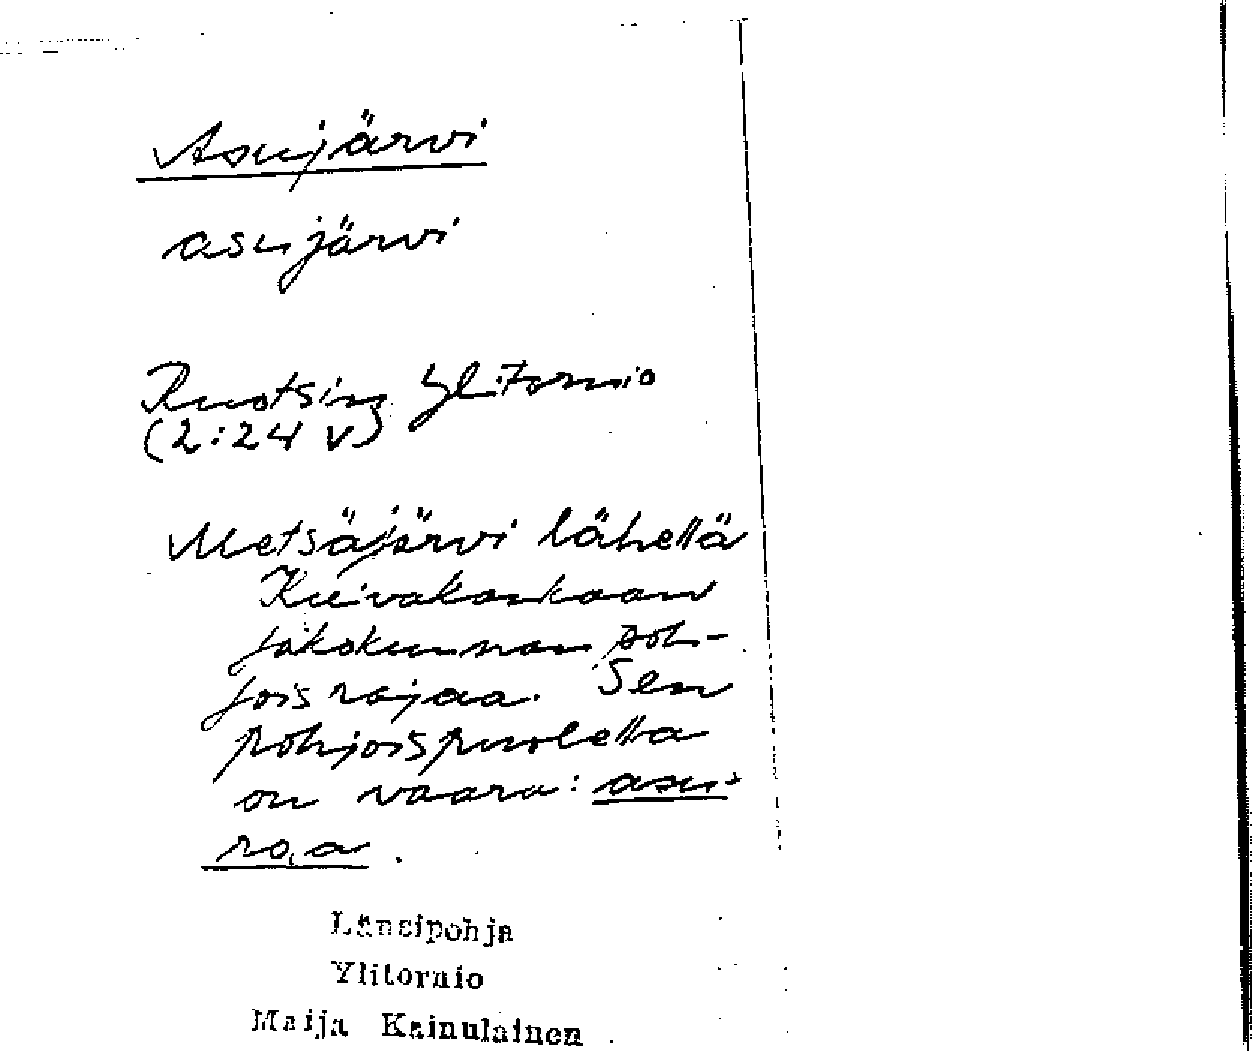 Asujärvi
asujärvi
Ruotsin Ylitornio
(2:24 V)
Metsäjärvi lähellä
Kuivakankaan
jakokunnan poh-
joisrajaa. Sen
pohjoispuolella
on vaara: asu-
roa.
Länsipohja
Ylitornio
Maija Kainulainen